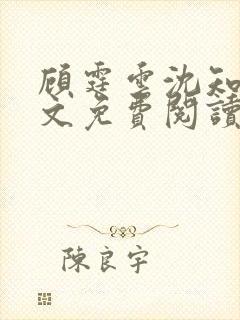 顾霆雪沈知
文免費閱讀
陳良宇